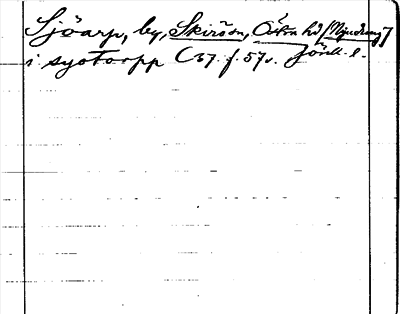 Sjöarp, by, Skirö sn, Östra hd [Njudung]
i syotorpp C 37. f. 57v. Jönk. l.